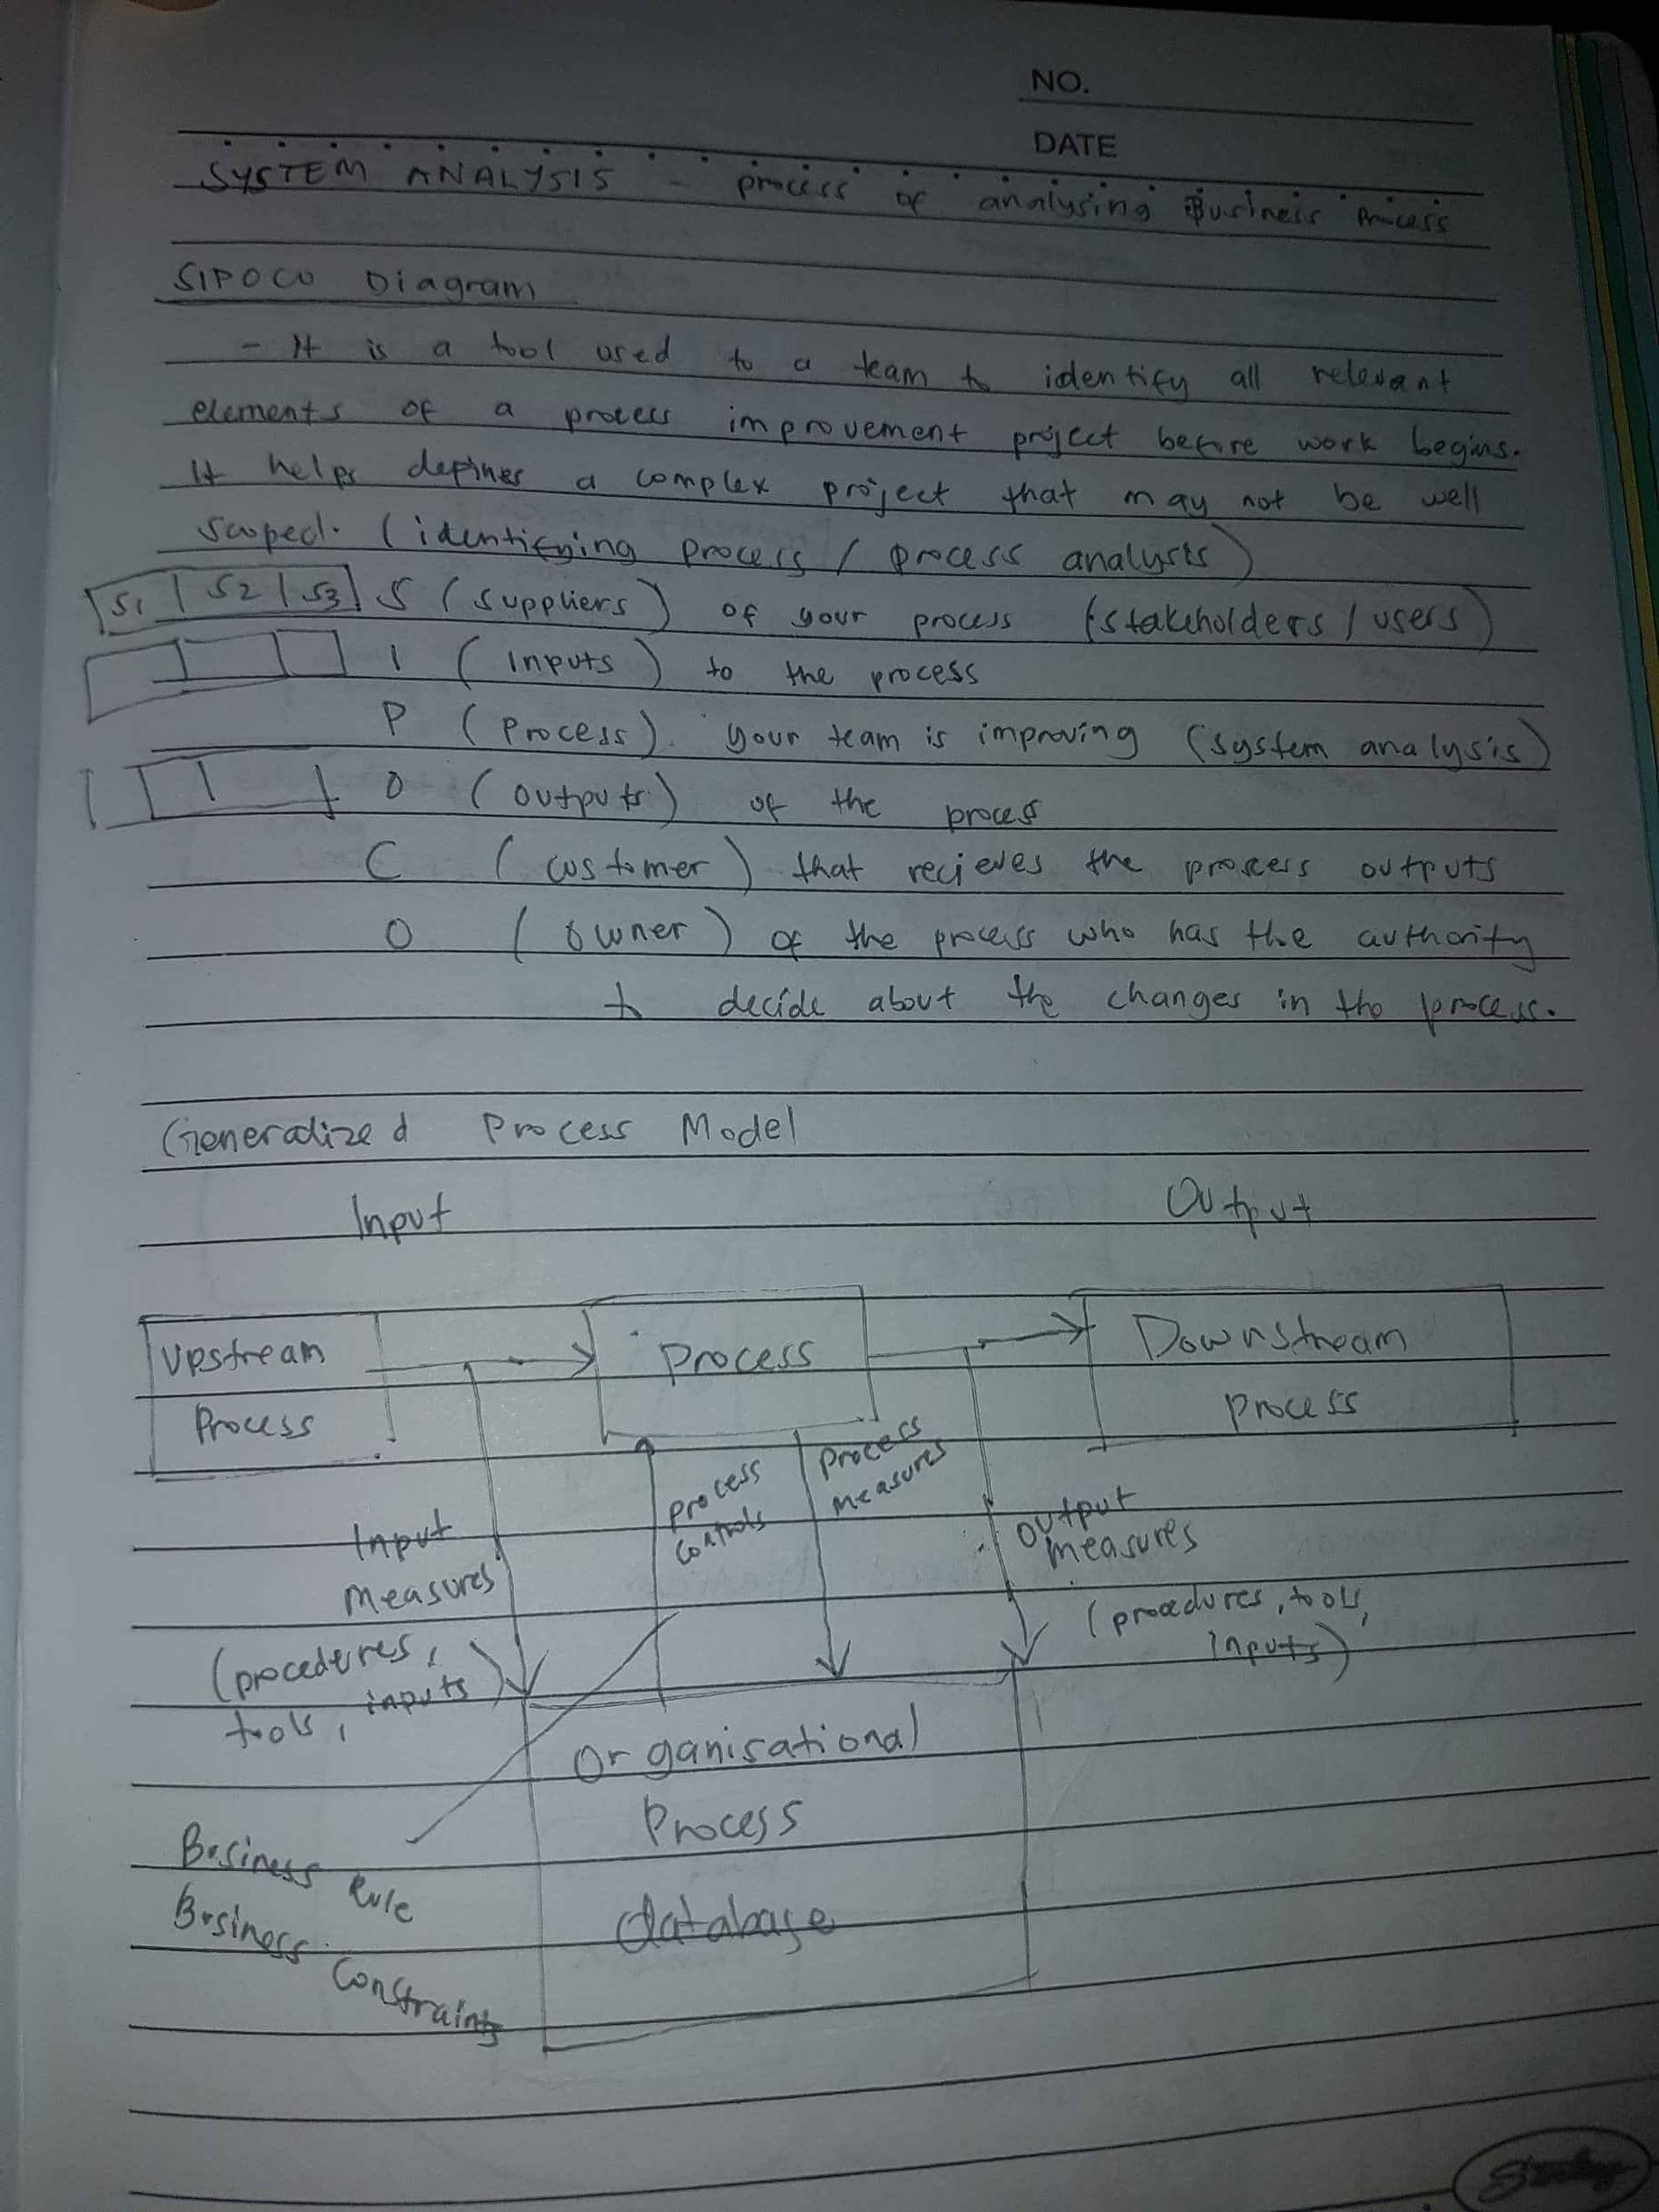 NO.
DATE
SYSTEM ANALYSIS - process of analysing Business Process
SIPOCO Diagram
- It is a tool used to a team to identify all relevant
elements of a process improvement project before work begins.
It helps defines a complex project that may not be well
scoped. (identifying process / process analysts)
S1 S2 S3 S (suppliers) of your process (stakeholders / users)
I (Inputs) to the process
P (Process). your team is improving (system analysis)
O (outputs) of the process
C (customer) that recieves the process outputs
O (owner) of the process who has the authority
to decide about the changes in the process.
Generalized Process Model
Input Output
Upstream Process Downstream
Process Process
Process Process
controls measures
Input Output
measures measures
(procedures, (procedures, tools,
tools, inputs) inputs)
Organisational
Process
database
Business Rule
Business Constraints